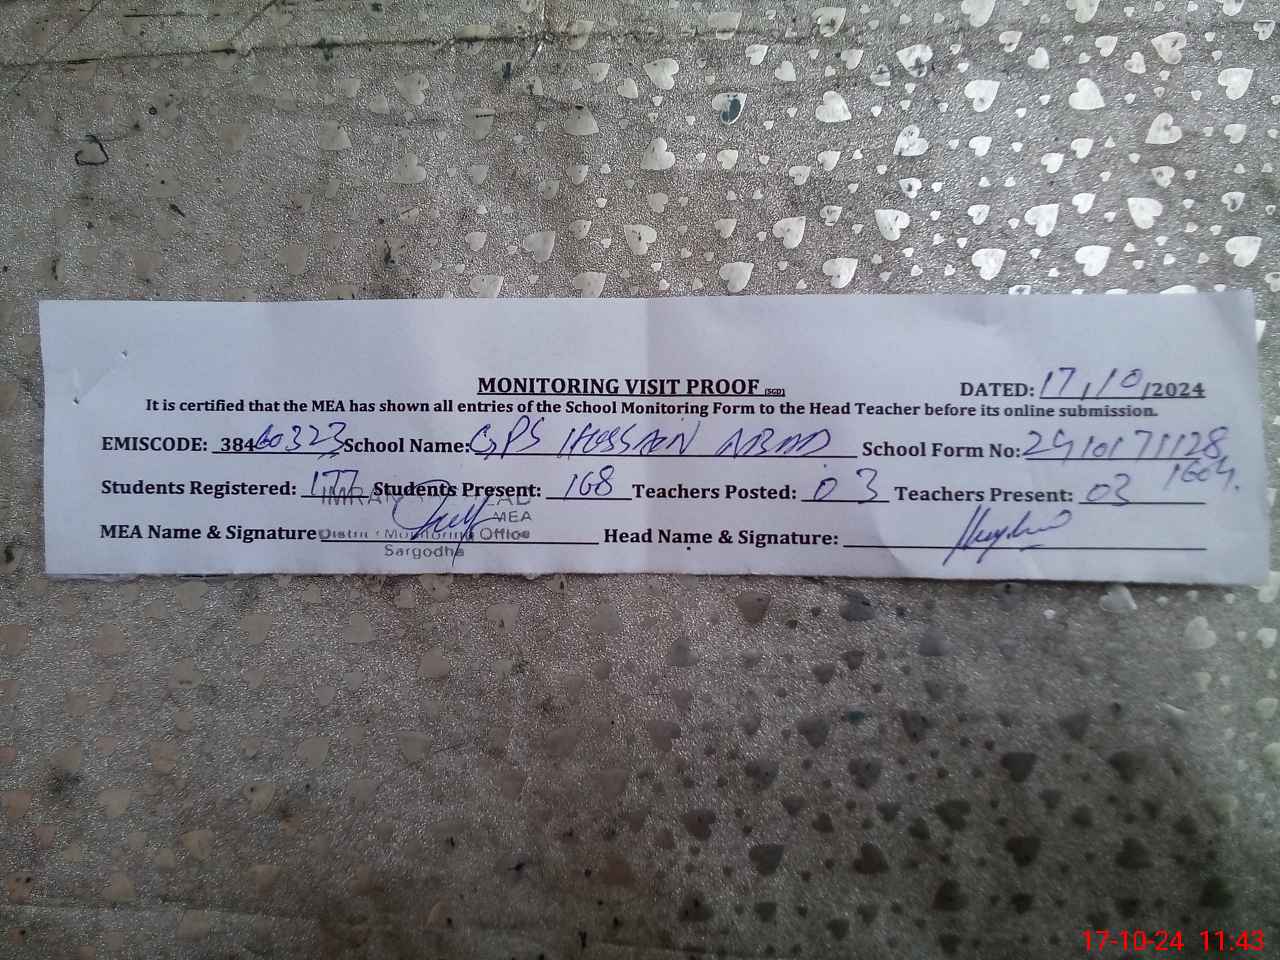 MONITORING VISIT PROOF (SGD)
DATED: 17/10/2024
It is certified that the MEA has shown all entries of the School Monitoring Form to the Head Teacher before its online submission.
EMISCODE: 38460323 School Name: GPS HUSSAIN ABAD School Form No: 2410171128
1604.
Students Registered: 177 Students Present: 168 Teachers Posted: 03 Teachers Present: 03
IMRAN
MEA
MEA Name & Signature District Monitoring Office Head Name & Signature:
Sargodha
17-10-24 11:43